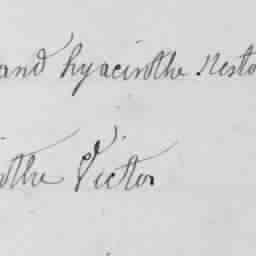 and hyacinthe Nesto
nthe Victor